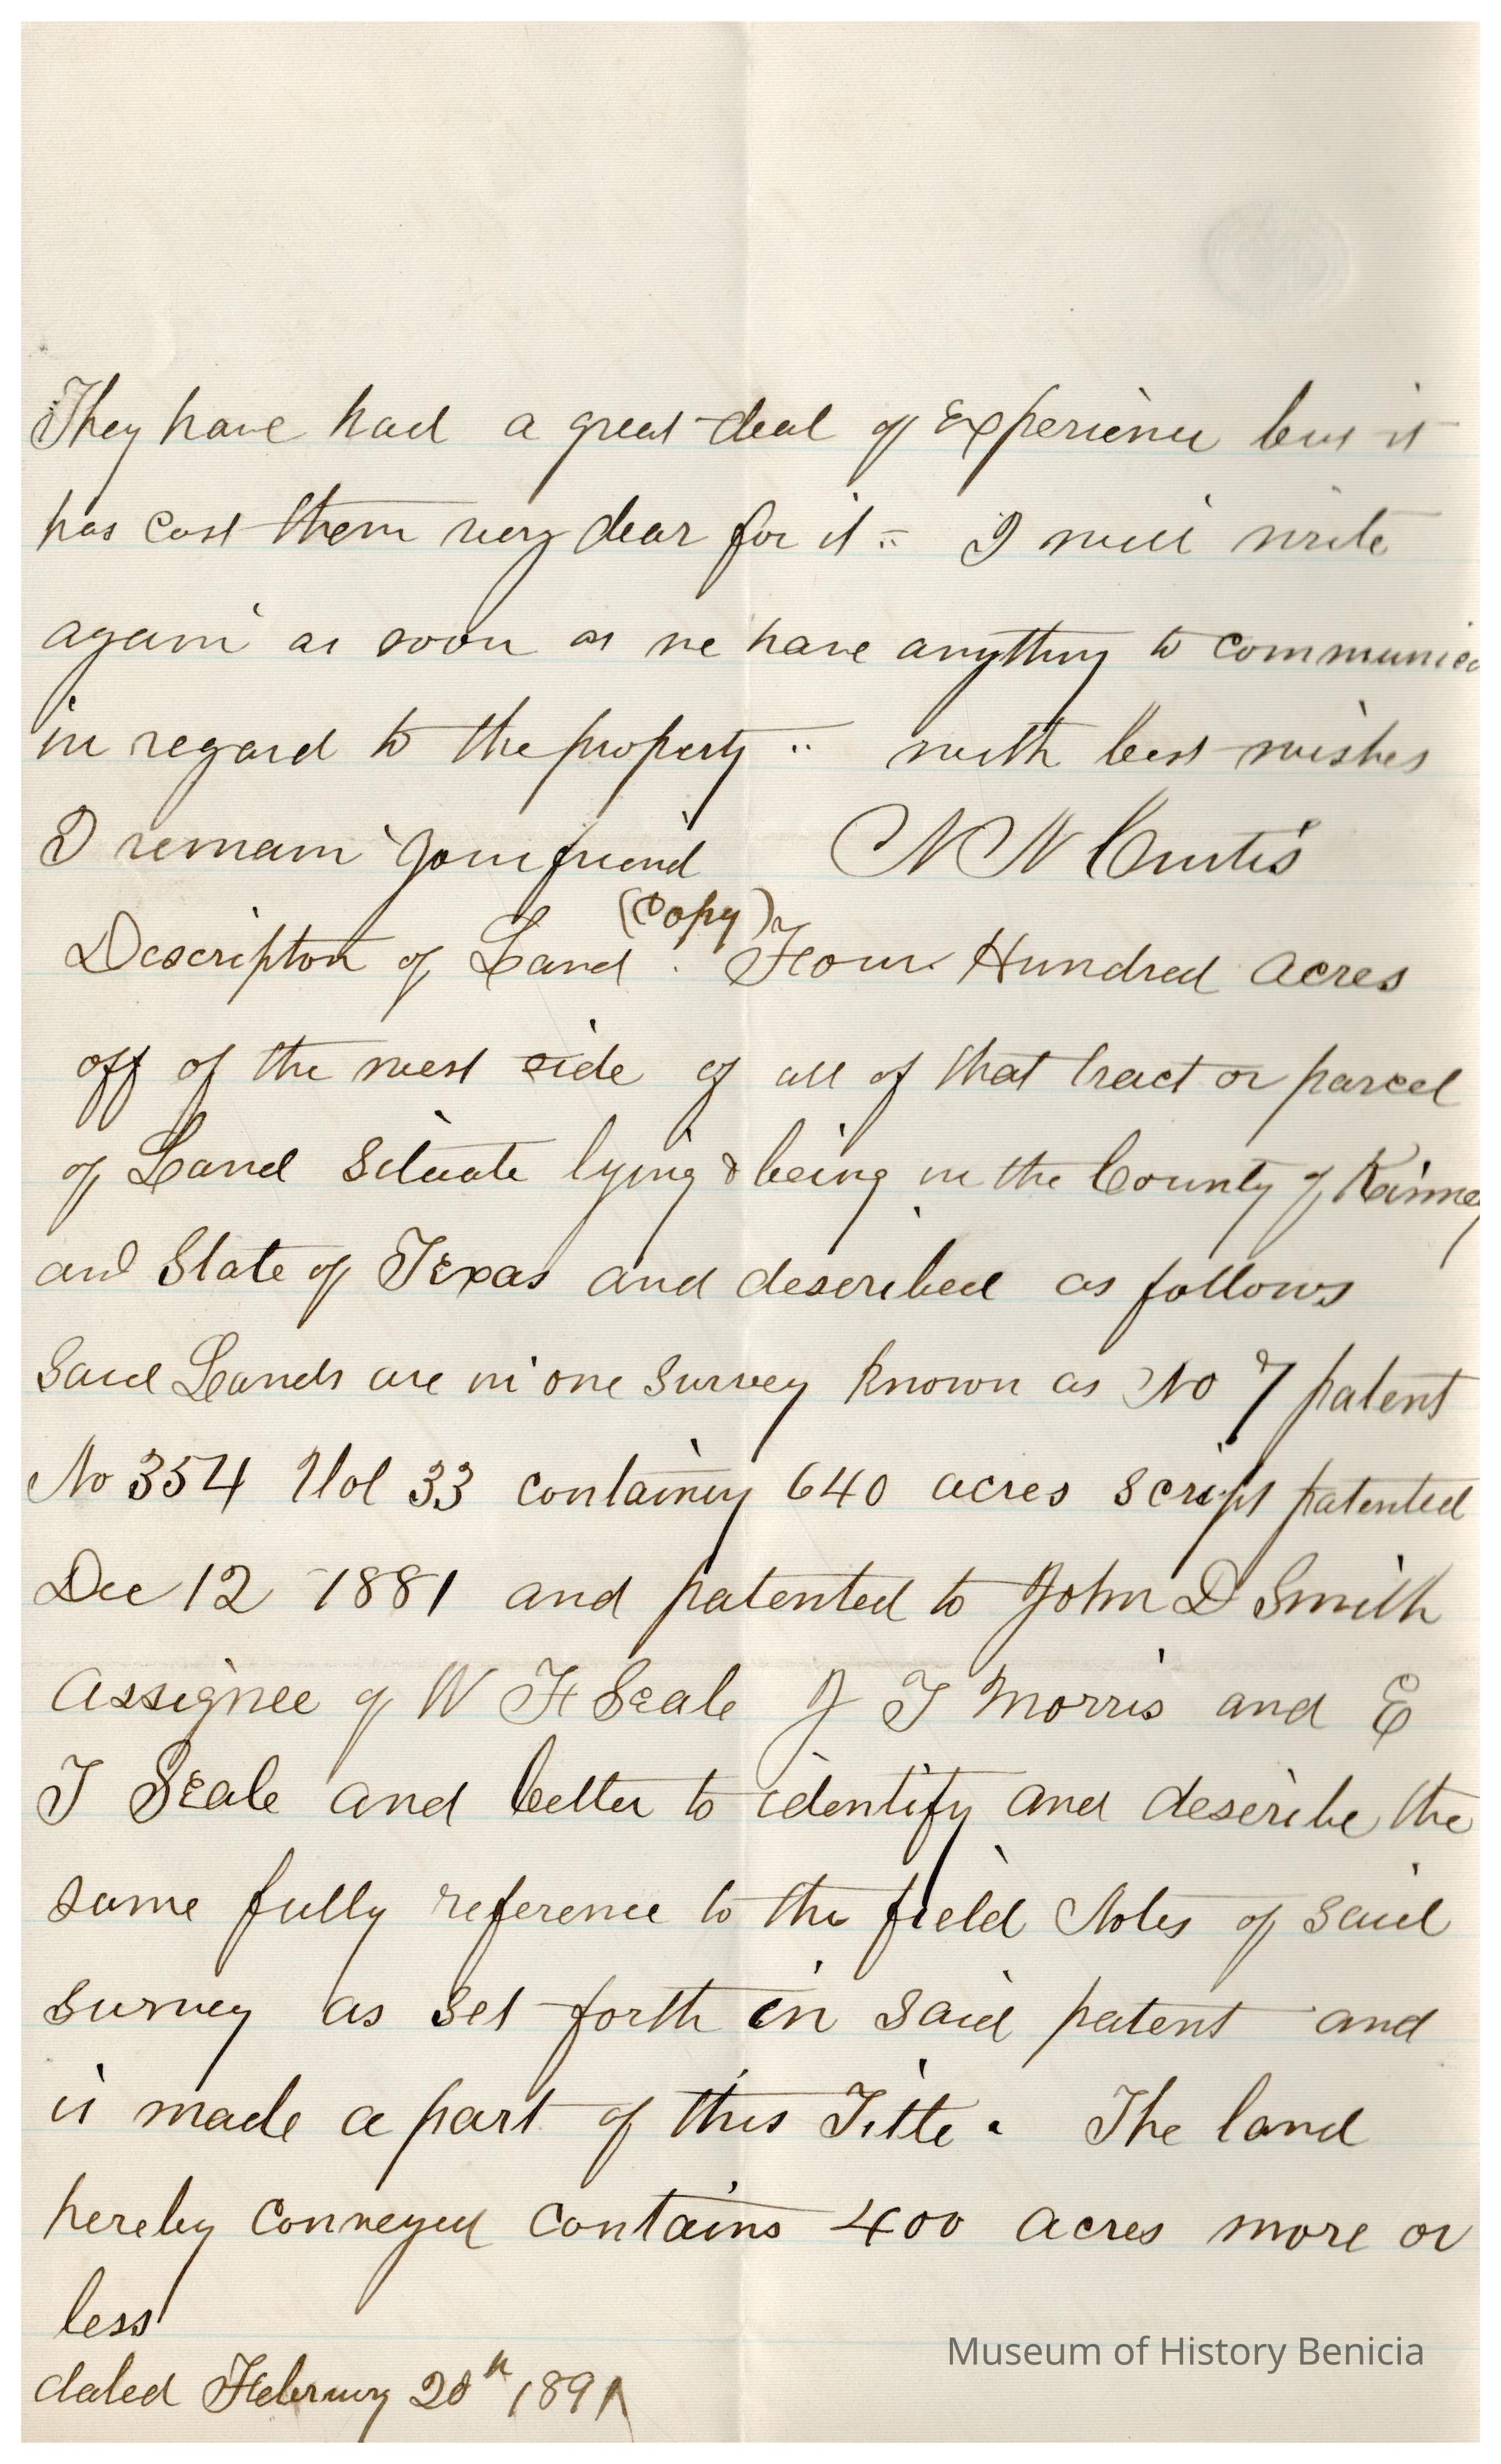 They have had a great deal of Experience but it
has cost them very dear for it = I will write
again as soon as we have anything to communica
in regard to the property .. with best wishes
I remain your friend N N Curtis
(Copy)
Descripton of Land . Four Hundred acres
off of the west side of all of that tract or parcel
of Land Situate lying & being in the County of Kinney
and State of Texas and described as follows
Said Lands are in one Survey known as No 7 patent
No 354 Vol 33 containing 640 acres Script patented
Dec 12 1881 and patented to John D Smith
assignee of W F Seale J T Morris and E
T Seale and better to identify and describe the
same fully reference to the field Notes of said
survey as set forth in said patent and
is made a part of this Title . The land
hereby conveyed contains 400 acres more or
less
dated February 20th 1891
Museum of History Benicia